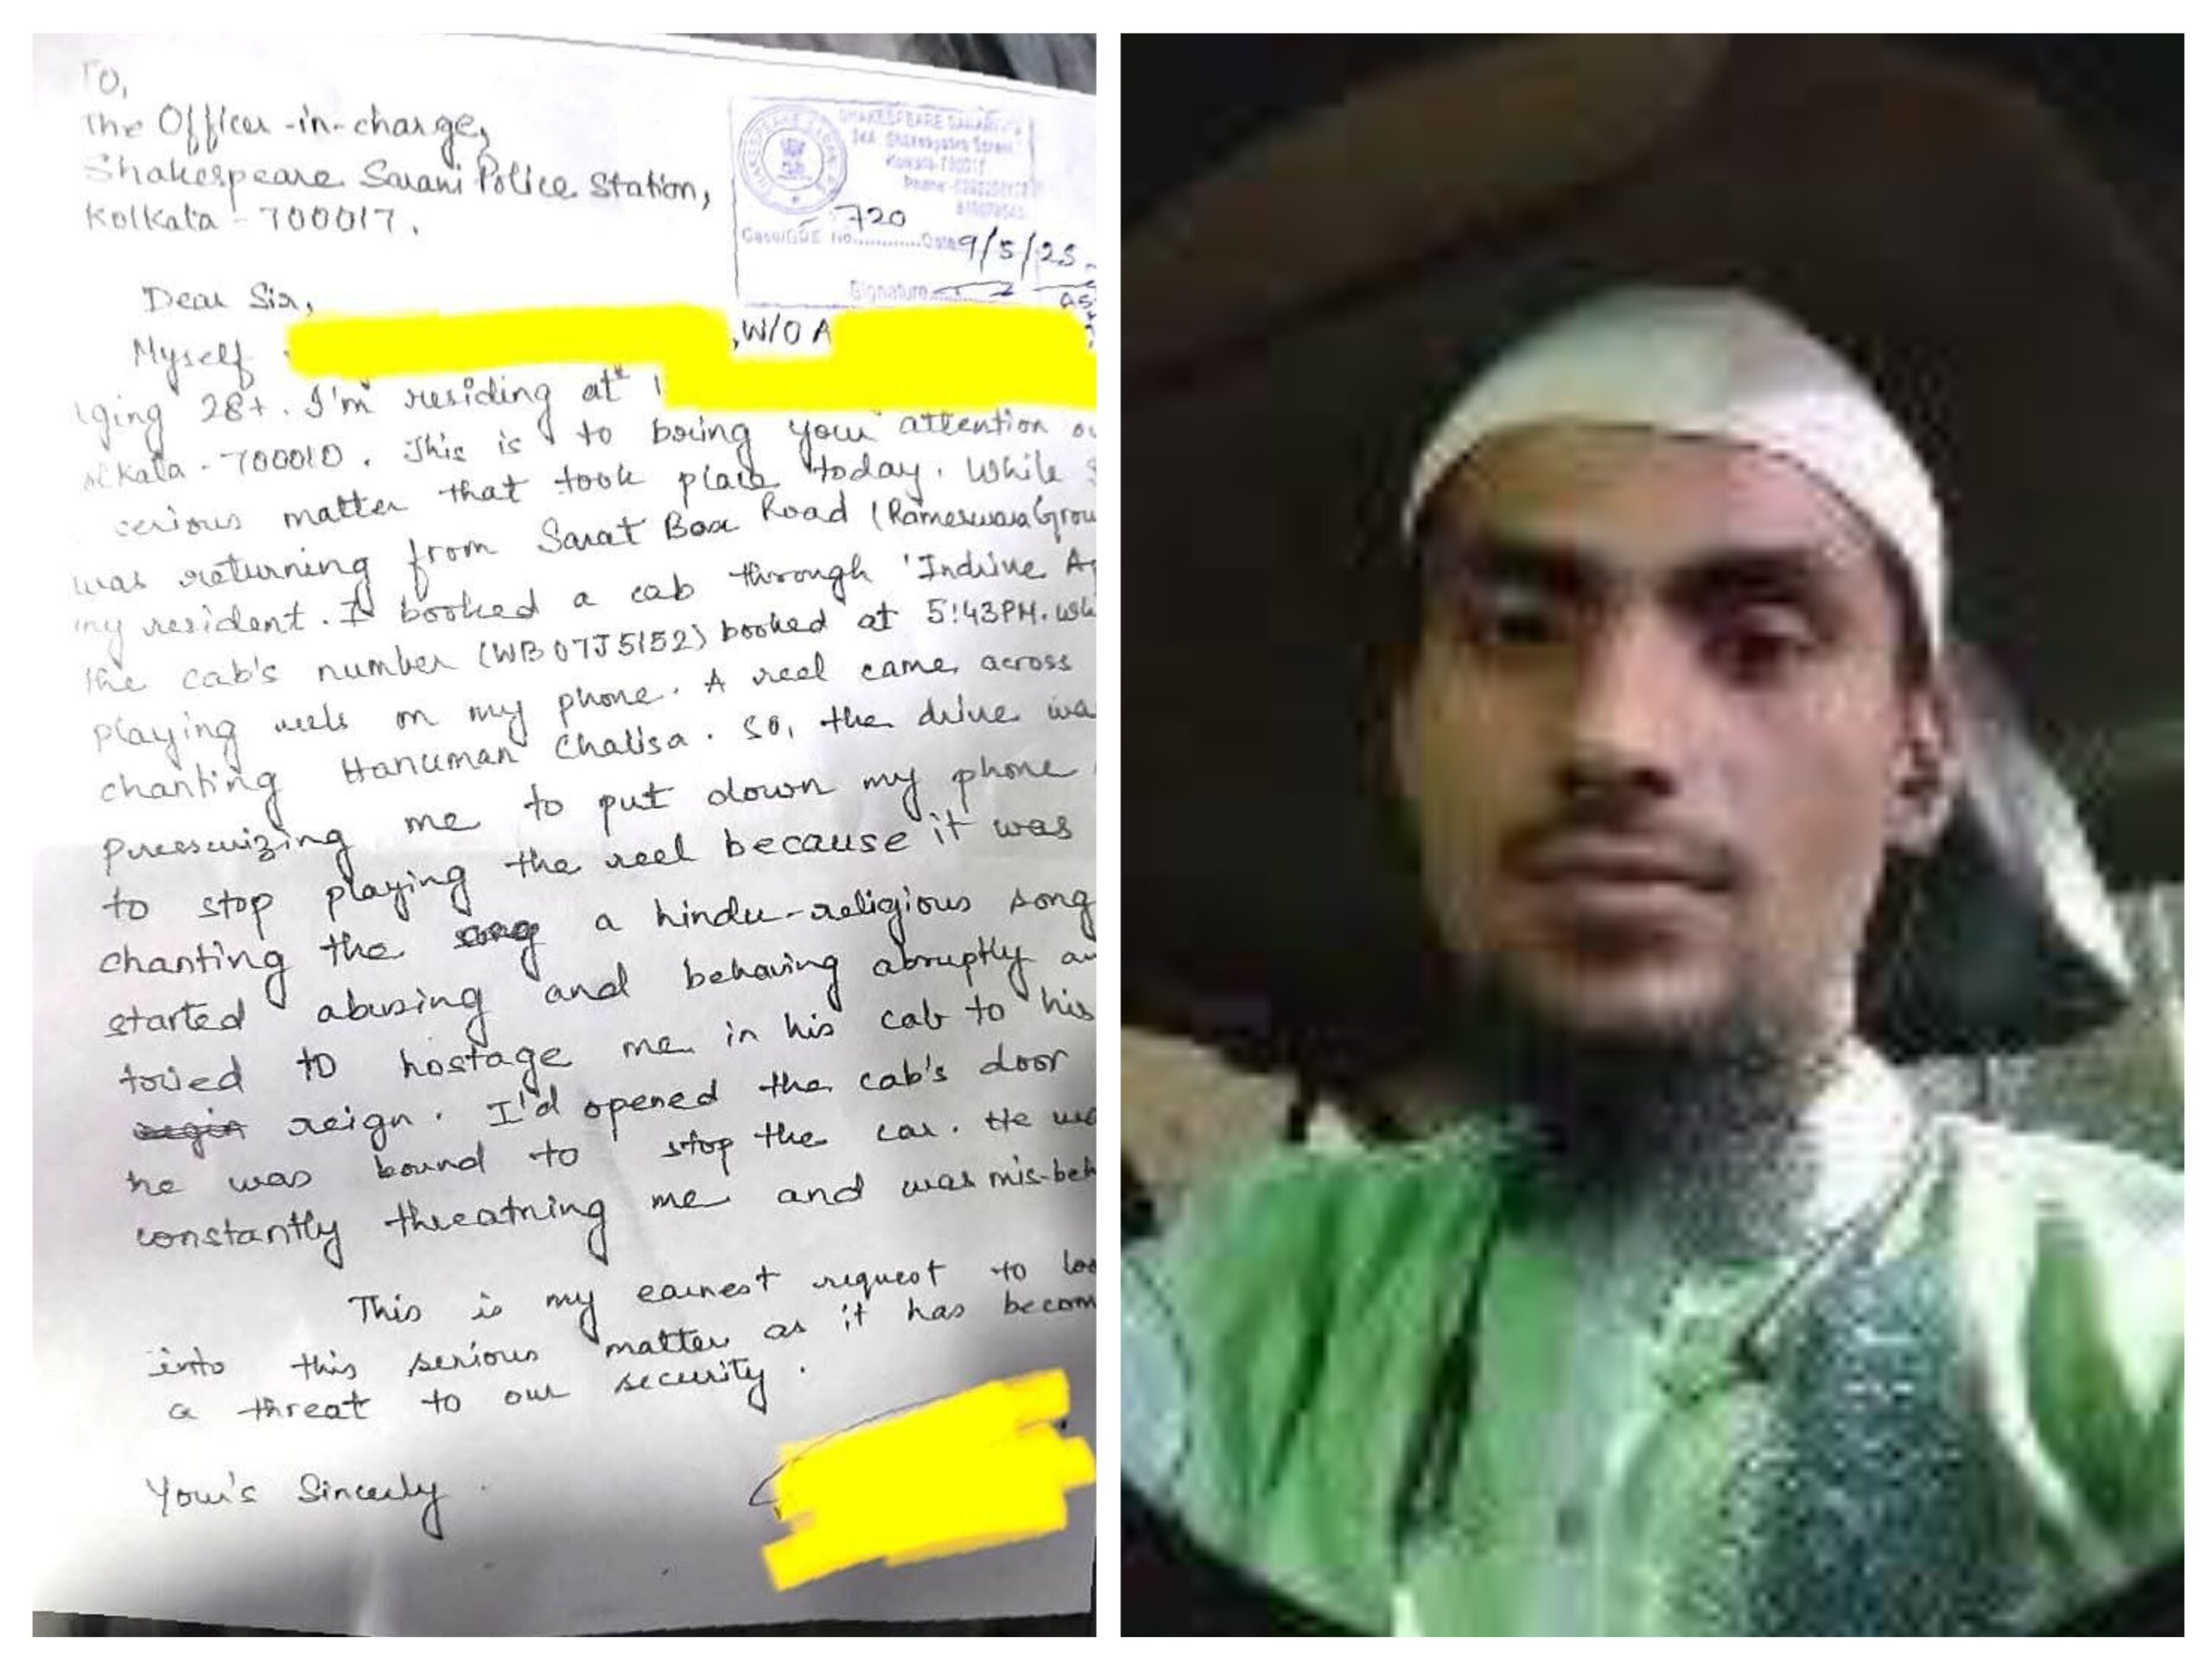 To,
The Officer-in-charge,
Shakespeare Sarani Police Station,
Kolkata - 700017.
SHAKESPEARE SARANI
24A, Shakespeare Sarani
Kolkata-700017
Phone
720
Case/GDE No.............Date 9/5/25
Signature
Dear Sir,
Myself
, W/O A
ging 28+. I'm residing at
lkata - 700010. This is to bring your attention
serious matter that took place today. While
was returning from Sarat Bose Road (Rameswara Grou
my resident. I booked a cab through 'Indrive A
the cab's number (WB07J5152) booked at 5:43PM. whi
playing reels on my phone. A reel came across
chanting Hanuman Chalisa. So, the drive wa
pressurizing me to put down my phone
to stop playing the reel because it was
chanting the song a hindu-religious song
started abusing and behaving abruptly an
tried to hostage me in his cab to his
reign. I'd opened the cab's door
he was bound to stop the car. He wa
constantly threatning me and was mis-beh
This is my earnest request to loo
into this serious matter as it has becom
a threat to our security.
Your's Sincerly